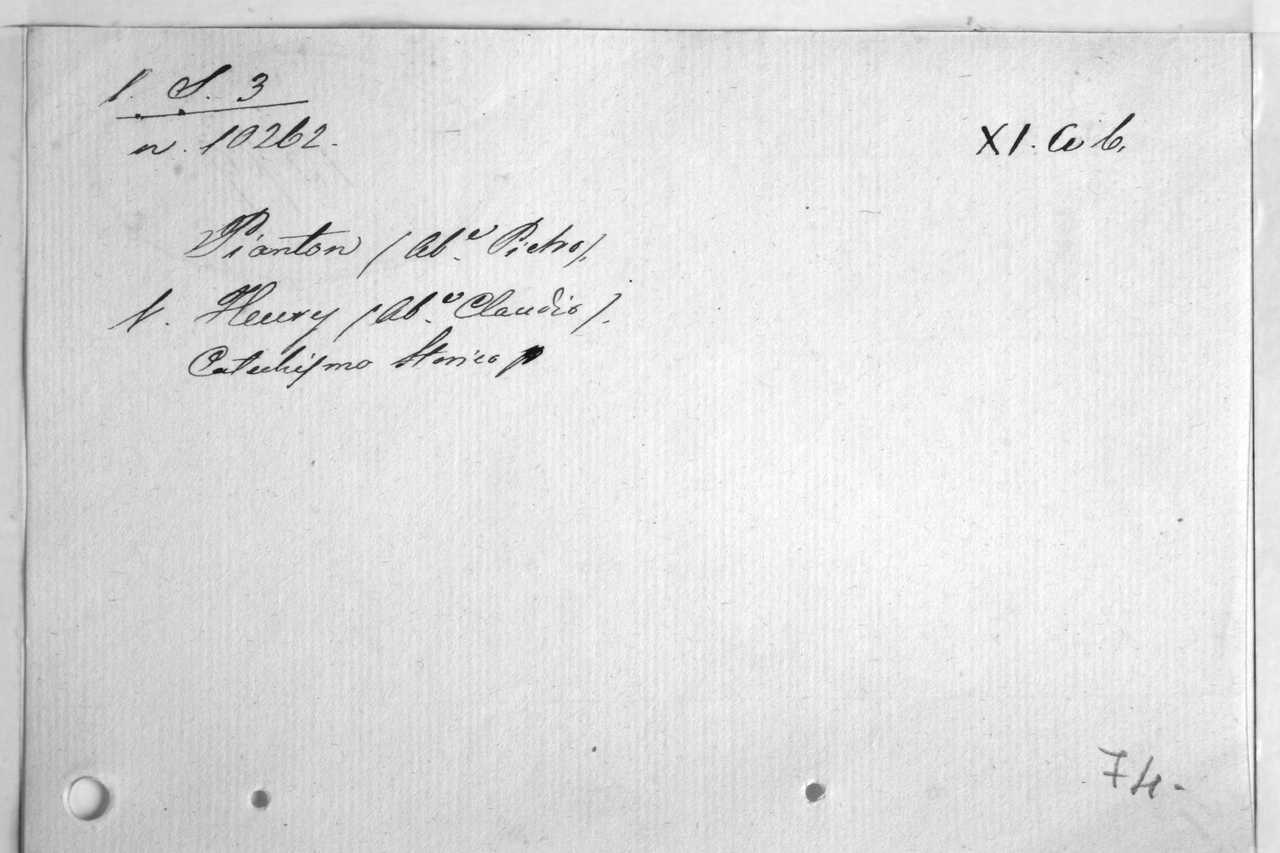 1. S. 3
n. 10262.
XI. A b.
Pianton (Ab.e Pietro).
V. Fleury (Ab.e Claudio).
Catechismo Storico
74.